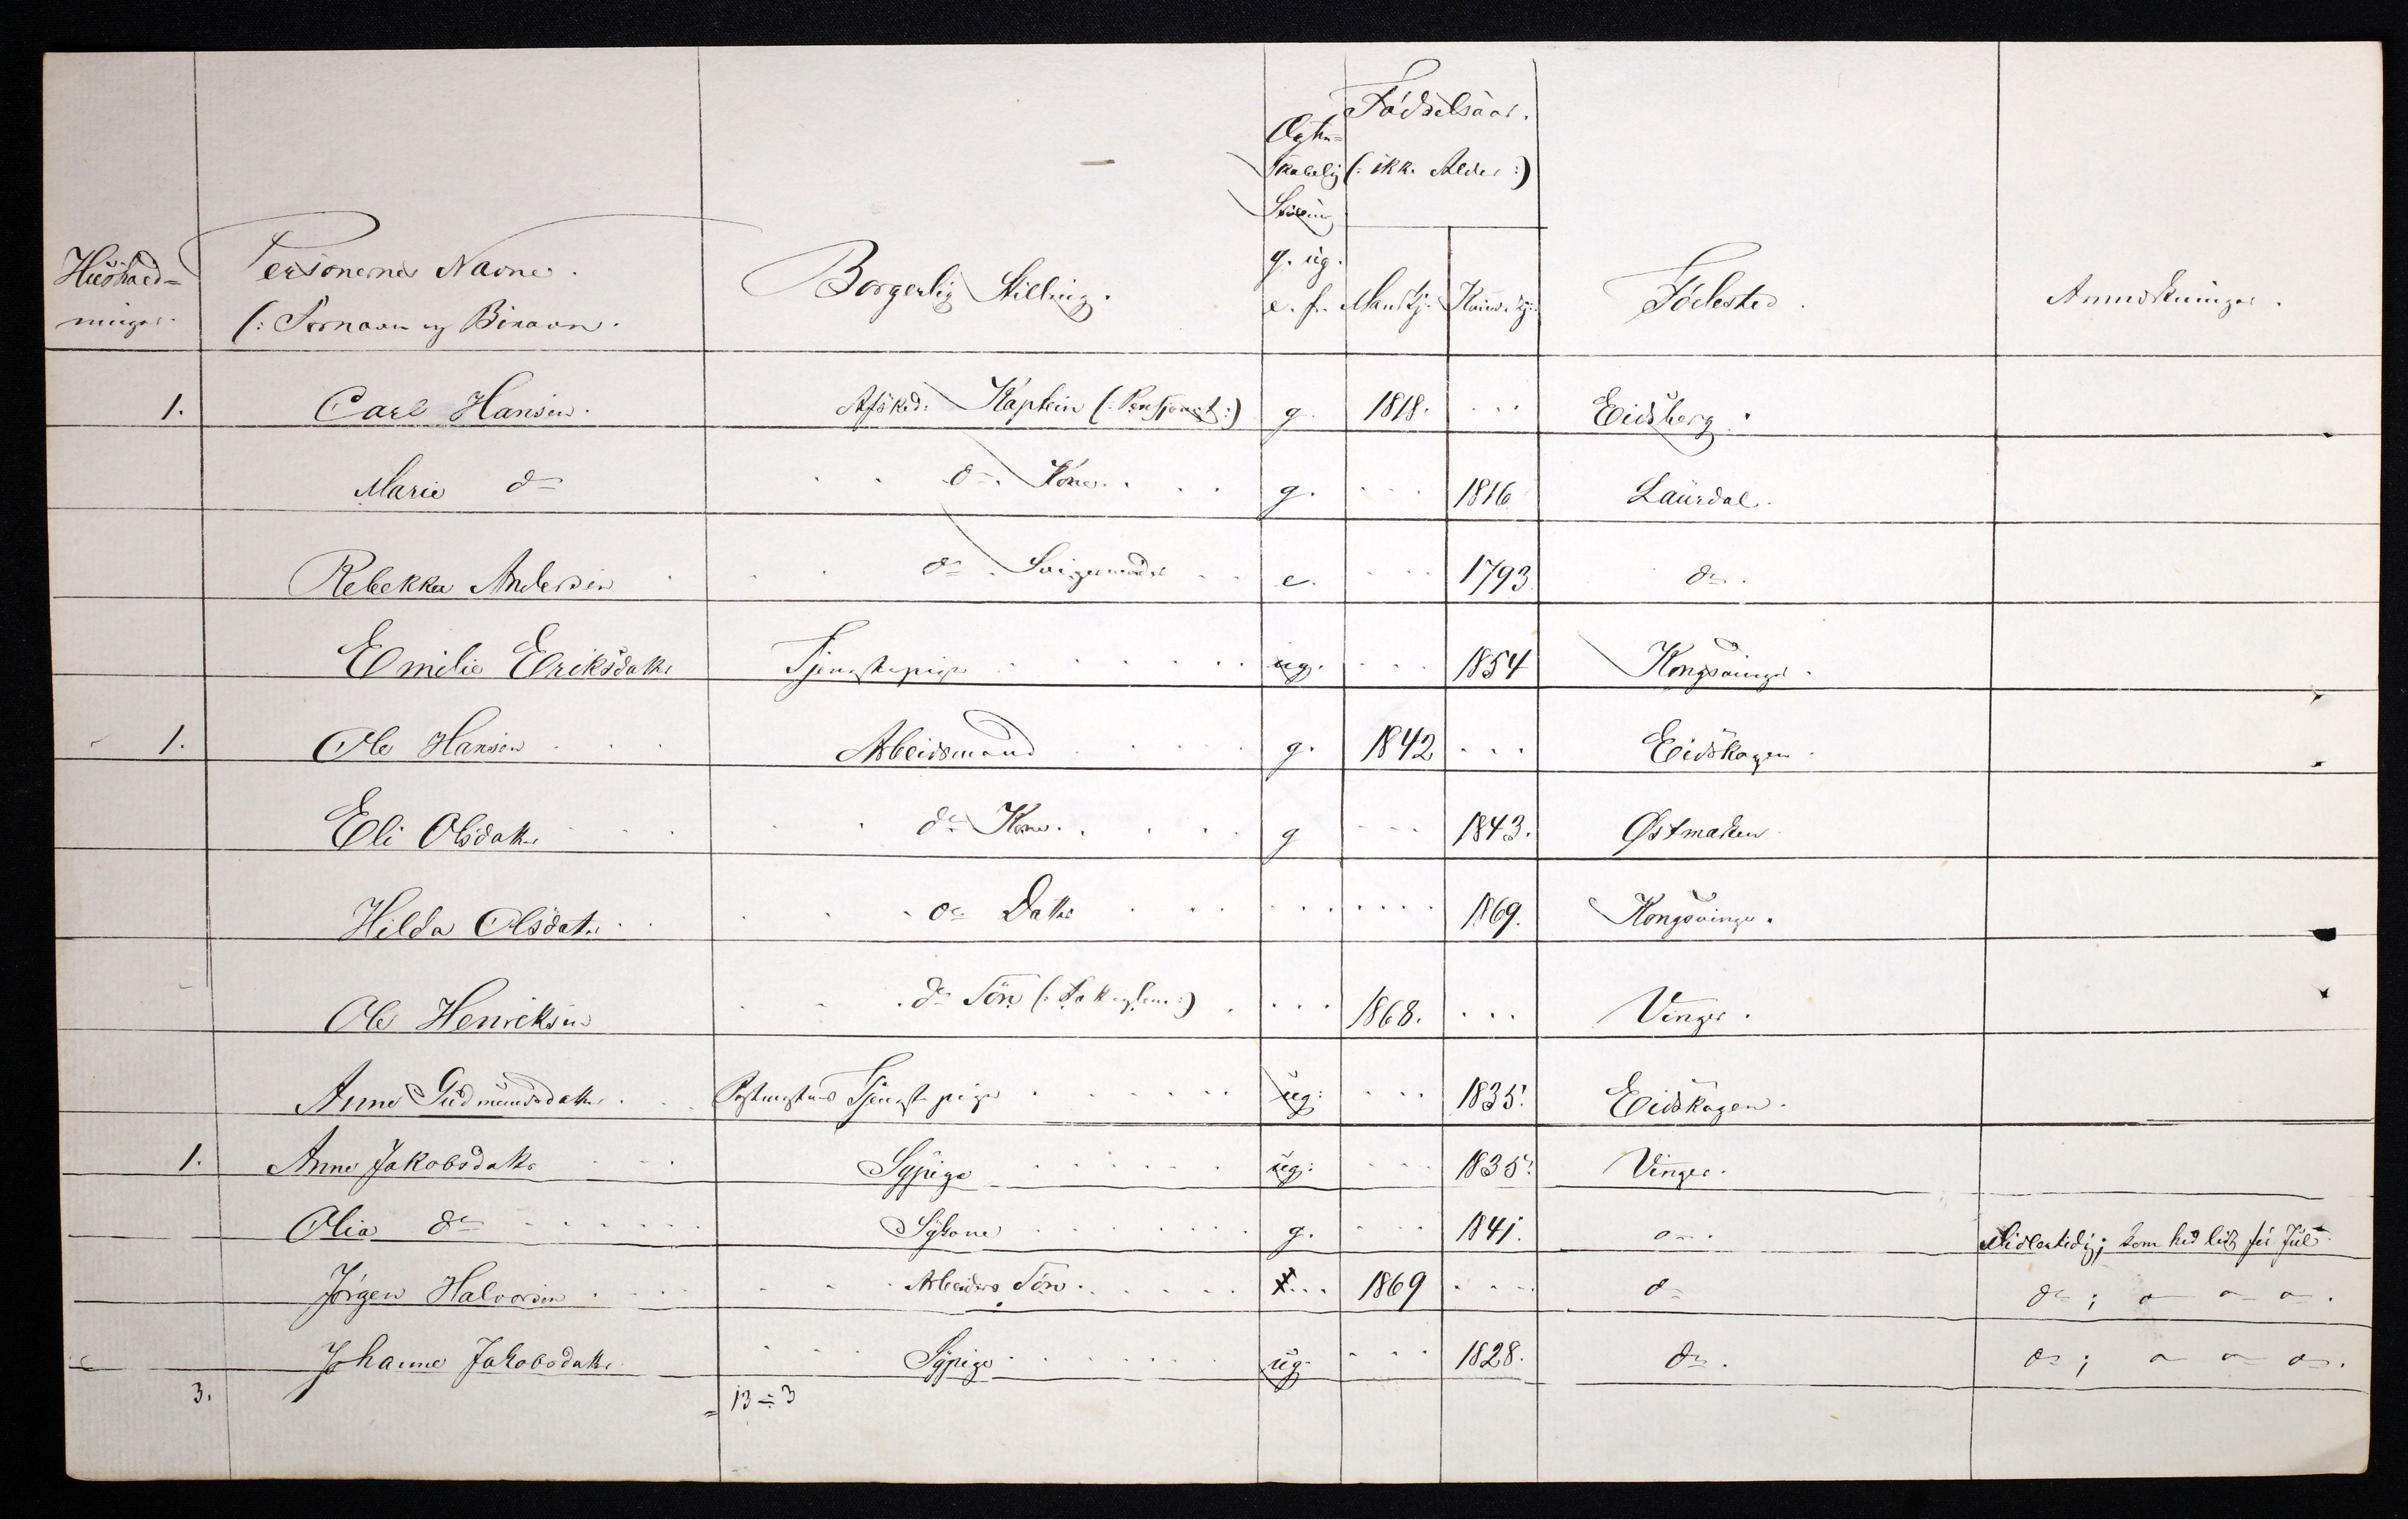 Husholdninger.
Personernes Navne.
(: Fornavn og Binavn.
Borgerlig Stilling.
Ægteskabelig Stilling
g. ug.
e. f.
Fødselsaar.
(: ikke Alder :)
Mandkj.
Kvindekj.
Fødested.
Anmærkninger.
1. Carl Hansen. Afskd: Kaptein (: Pensjonist :) g. 1818. ... Eidsberg.
Marie do do. Kone. g. ... 1816 Laurdal.
Rebekka Andersen do. Svigermoder e. ... 1793. do.
Emilie Eriksdatter Tjenestepige ug. ... 1854 Kongsvinger.
1. Ole Hansen Arbeidsmand g. 1842 ... Eidskogen
Eli Olsdatter do Kone. g ... 1843. Østmarken
Hilda Olsdatr do Datter ... 1869. Kongsvinger.
Ole Henriksen do Søn (: :) ... 1868. ... Vinger.
Anne Gudmundsdatter. Postmesterens Tjenestepige ug: ... 1835. Eidskogen.
1. Anne Jakobsdatter Sypige ug: ... 1835. Vinger.
Olia do Sykone g. ... 1841. do. Midlertidig; som
Jørgen Halvorsen Arbeiders Søn. ... 1869 ... do do; do do do.
Johanne Jakobsdatter Sypige ug. ... 1828. do. do; do do do.
3. = 13 ÷ 3